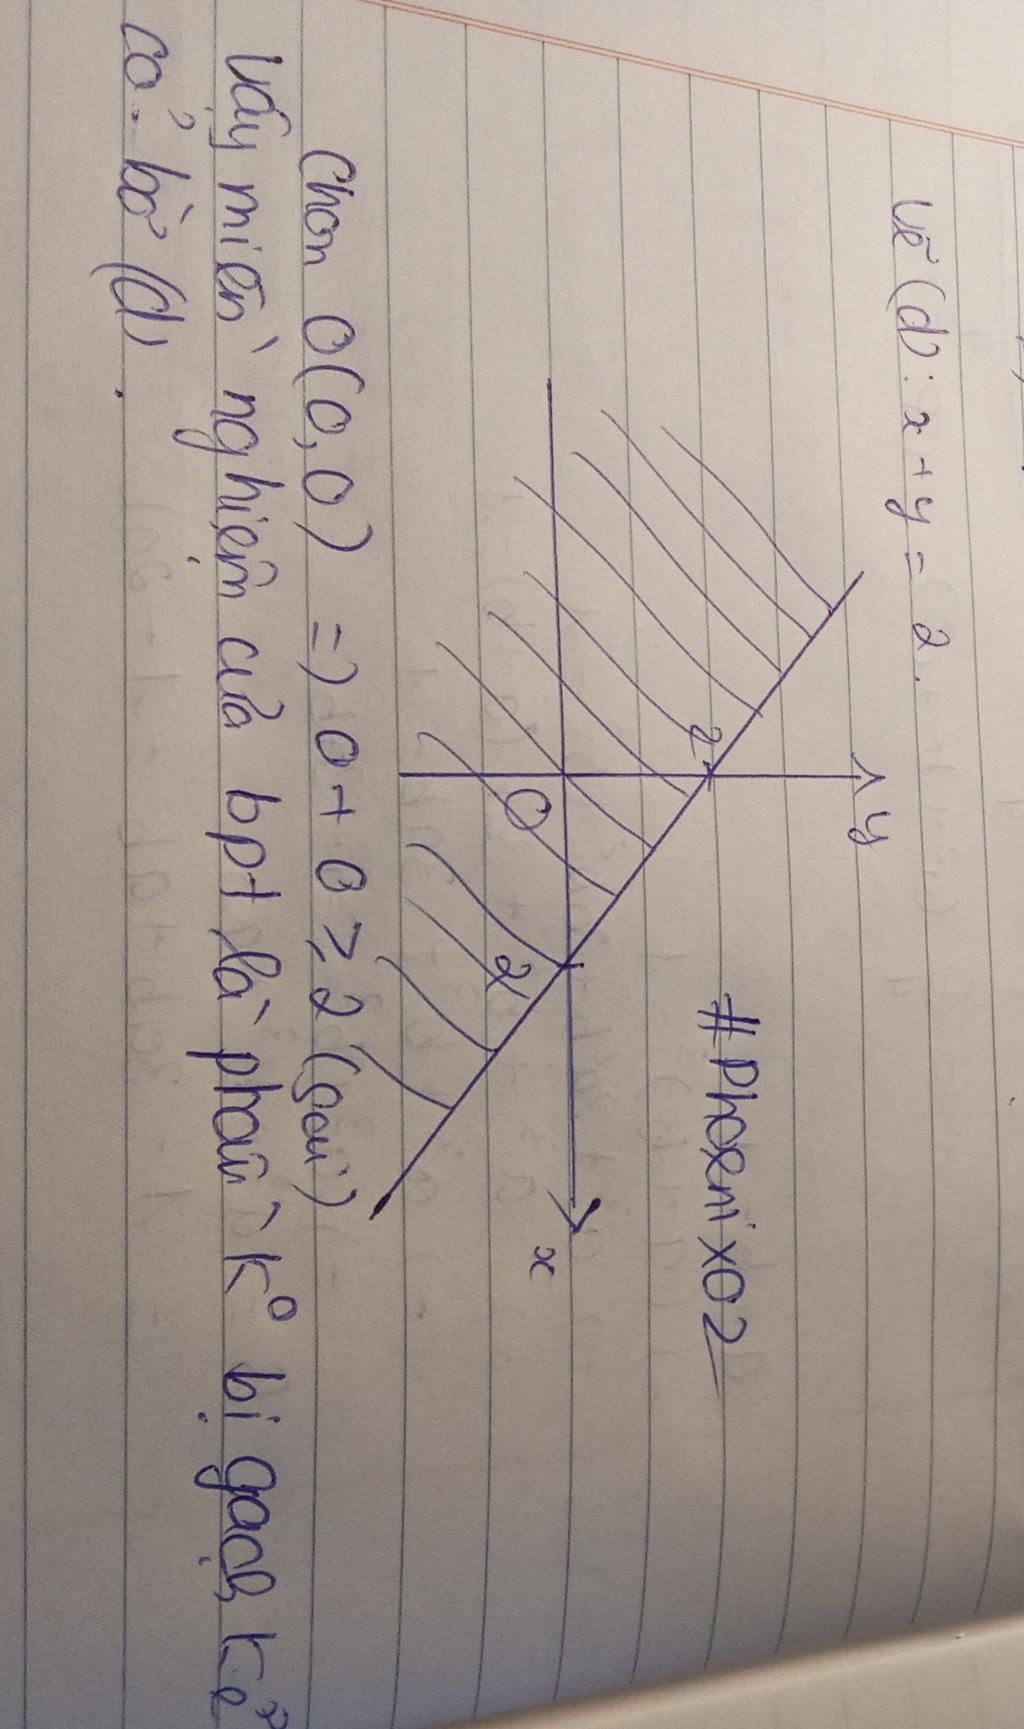 Vẽ (d): x + y = 2.
y
#Phoenix02
2
O
2
x
Chọn O(0,0) => 0 + 0 ≥ 2 (sai)
Vậy miền nghiệm của bpt là phần k° bị gạch kẻ
cả bờ (d).